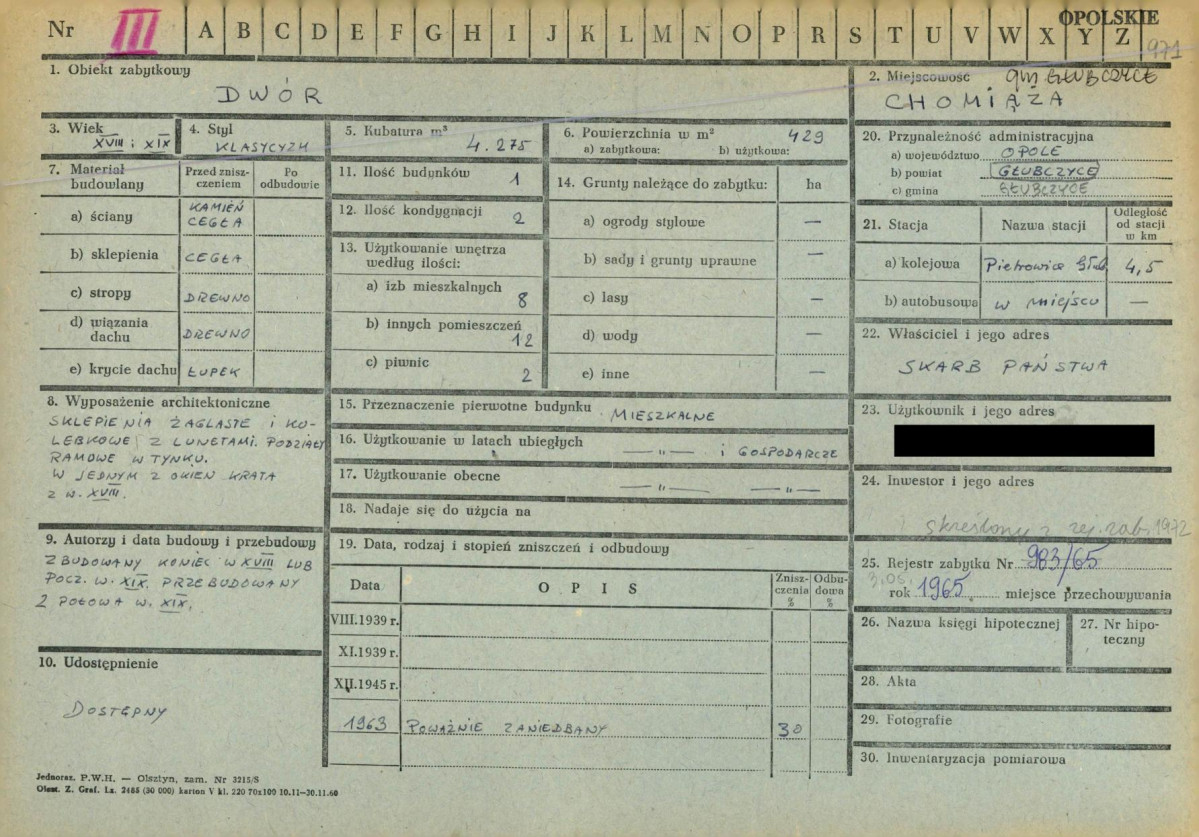 Nr III A B C D E F G H I J K L M N O P R S T U V W X Y Z
OPOLSKIE
971
1. Obiekt zabytkowy
DWÓR
2. Miejscowość gm GŁUBCZYCE
CHOMIĄŻA
3. Wiek
XVIII i XIX
4. Styl
KLASYCYZM
5. Kubatura m³
4.275
6. Powierzchnia w m² 429
a) zabytkowa: b) użytkowa:
7. Materiał budowlany
Przed zniszczeniem
Po odbudowie
a) ściany KAMIEŃ
CEGŁA
b) sklepienia CEGŁA
c) stropy DREWNO
d) wiązania dachu DREWNO
e) krycie dachu ŁUPEK
8. Wyposażenie architektoniczne
SKLEPIENIA ŻAGLASTE i KO-
LEBKOWE Z LUNETAMI. PODZIAŁY
RAMOWE W TYNKU.
W JEDNYM Z OKIEN KRATA
Z W. XVIII.
9. Autorzy i data budowy i przebudowy
ZBUDOWANY KONIEC W XVIII LUB
POCZ. W. XIX. PRZEBUDOWANY
2 POŁOWA W. XIX.
10. Udostępnienie
DOSTĘPNY
11. Ilość budynków 1
12. Ilość kondygnacji 2
13. Użytkowanie wnętrza
według ilości:
a) izb mieszkalnych
8
b) innych pomieszczeń
12
c) piwnic
2
14. Grunty należące do zabytku: ha
a) ogrody stylowe —
b) sady i grunty uprawne —
c) lasy —
d) wody —
e) inne —
15. Przeznaczenie pierwotne budynku MIESZKALNE
16. Użytkowanie w latach ubiegłych — „ — i GOSPODARCZE
17. Użytkowanie obecne — „ — — „ —
18. Nadaje się do użycia na
19. Data, rodzaj i stopień zniszczeń i odbudowy
Data OPIS Zniszczenia % Odbudowa %
VIII.1939 r.
XI.1939 r.
XII.1945 r.
1963 POWAŻNIE ZANIEDBANY 30
20. Przynależność administracyjna
a) województwo OPOLE
b) powiat GŁUBCZYCE
c) gmina GŁUBCZYCE
21. Stacja Nazwa stacji Odległość od stacji w km
a) kolejowa Pietrowice Głub. 4,5
b) autobusowa w miejscu —
22. Właściciel i jego adres
SKARB PAŃSTWA
23. Użytkownik i jego adres
24. Inwestor i jego adres
skreślony z rej. zab. 1972
25. Rejestr zabytku Nr 983/65
3.05.
rok 1965. miejsce przechowywania
26. Nazwa księgi hipotecznej
27. Nr hipo-
teczny
28. Akta
29. Fotografie
30. Inwentaryzacja pomiarowa
Jednoraz. P.W.H. — Olsztyn, zam. Nr 3215/S
Olszt. Z. Graf. Lz. 2485 (30 000) karton V kl. 220 70x100 10.11—30.11.60